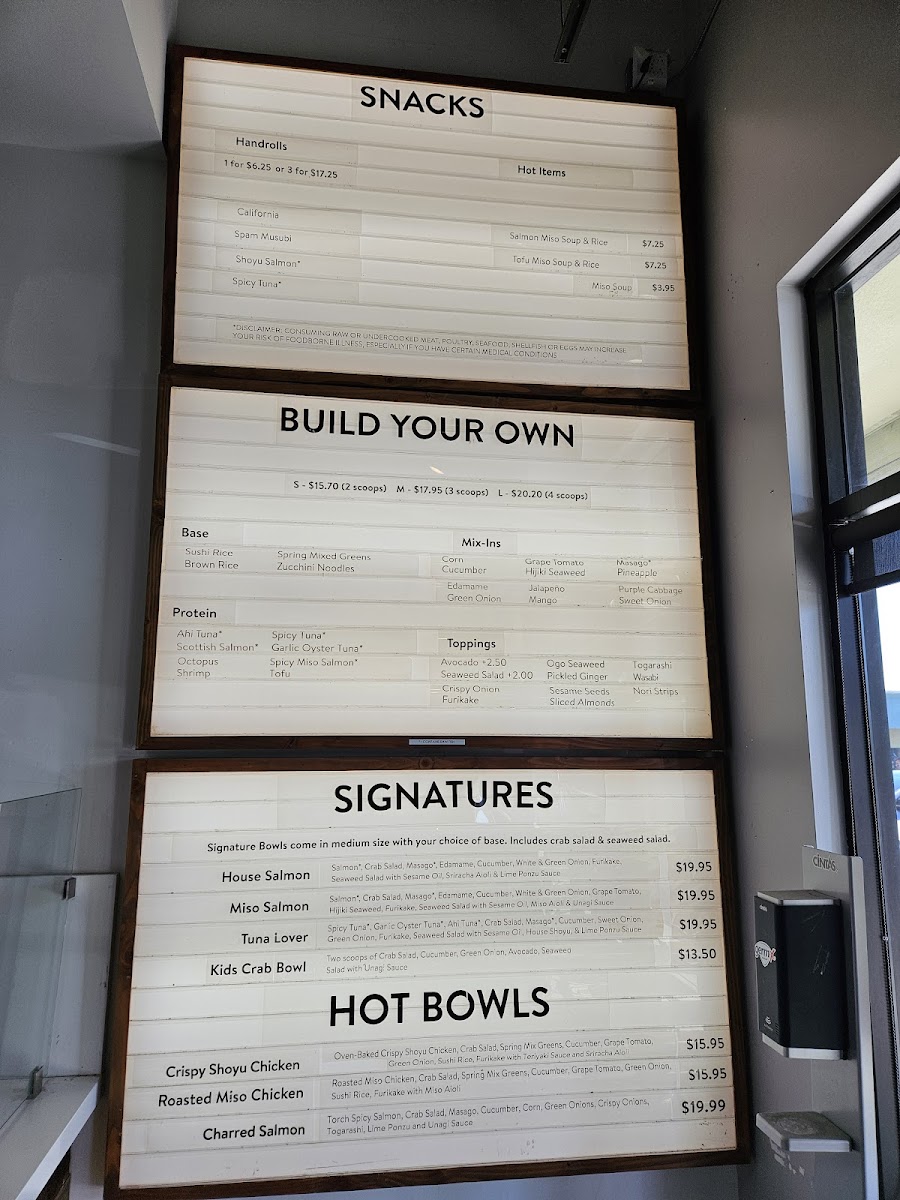 SNACKS
Handrolls
1 for $6.25 or 3 for $17.25
California
Spam Musubi
Shoyu Salmon*
Spicy Tuna*
Hot Items
Salmon Miso Soup & Rice $7.25
Tofu Miso Soup & Rice $7.25
Miso Soup $3.95
*DISCLAIMER: CONSUMING RAW OR UNDERCOOKED MEAT, POULTRY, SEAFOOD, SHELLFISH OR EGGS MAY INCREASE
YOUR RISK OF FOODBORNE ILLNESS, ESPECIALLY IF YOU HAVE CERTAIN MEDICAL CONDITIONS
BUILD YOUR OWN
S - $15.70 (2 scoops) M - $17.95 (3 scoops) L - $20.20 (4 scoops)
Base
Sushi Rice Spring Mixed Greens
Brown Rice Zucchini Noodles
Protein
Ahi Tuna* Spicy Tuna*
Scottish Salmon* Garlic Oyster Tuna*
Octopus Spicy Miso Salmon*
Shrimp Tofu
Mix-Ins
Corn Grape Tomato Masago*
Cucumber Hijiki Seaweed Pineapple
Edamame Jalapeño Purple Cabbage
Green Onion Mango Sweet Onion
Toppings
Avocado +2.50 Ogo Seaweed Togarashi
Seaweed Salad +2.00 Pickled Ginger Wasabi
Crispy Onion Sesame Seeds Nori Strips
Furikake Sliced Almonds
SIGNATURES
Signature Bowls come in medium size with your choice of base. Includes crab salad & seaweed salad.
House Salmon Salmon*, Crab Salad, Masago*, Edamame, Cucumber, White & Green Onion, Furikake, $19.95
Seaweed Salad with Sesame Oil, Sriracha Aioli & Lime Ponzu Sauce
Miso Salmon Salmon*, Crab Salad, Masago*, Edamame, Cucumber, White & Green Onion, Grape Tomato, $19.95
Hijiki Seaweed, Furikake, Seaweed Salad with Sesame Oil, Miso Aioli & Unagi Sauce
Tuna Lover Spicy Tuna*, Garlic Oyster Tuna*, Ahi Tuna*, Crab Salad, Masago*, Cucumber, Sweet Onion, $19.95
Green Onion, Furikake, Seaweed Salad with Sesame Oil, House Shoyu, & Lime Ponzu Sauce
Kids Crab Bowl Two scoops of Crab Salad, Cucumber, Green Onion, Avocado, Seaweed $13.50
Salad with Unagi Sauce
HOT BOWLS
Crispy Shoyu Chicken Oven-Baked Crispy Shoyu Chicken, Crab Salad, Spring Mix Greens, Cucumber, Grape Tomato, $15.95
Green Onion, Sushi Rice, Furikake with Teriyaki Sauce and Sriracha Aioli
Roasted Miso Chicken Roasted Miso Chicken, Crab Salad, Spring Mix Greens, Cucumber, Grape Tomato, Green Onion, $15.95
Sushi Rice, Furikake with Miso Aioli
Charred Salmon Torch Spicy Salmon, Crab Salad, Masago, Cucumber, Corn, Green Onions, Crispy Onions, $19.99
Togarashi, Lime Ponzu and Unagi Sauce
CINTAS
germ